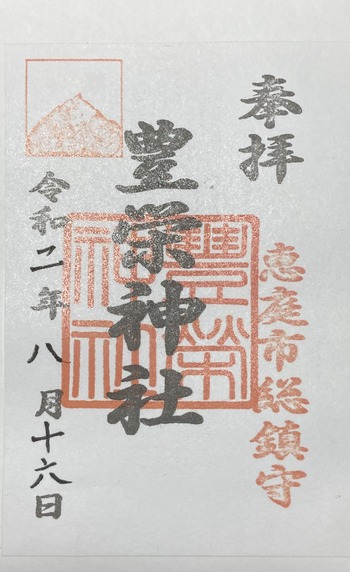 奉拝
恵庭市総鎮守
豊栄神社
豊榮神社
令和二年八月十六日